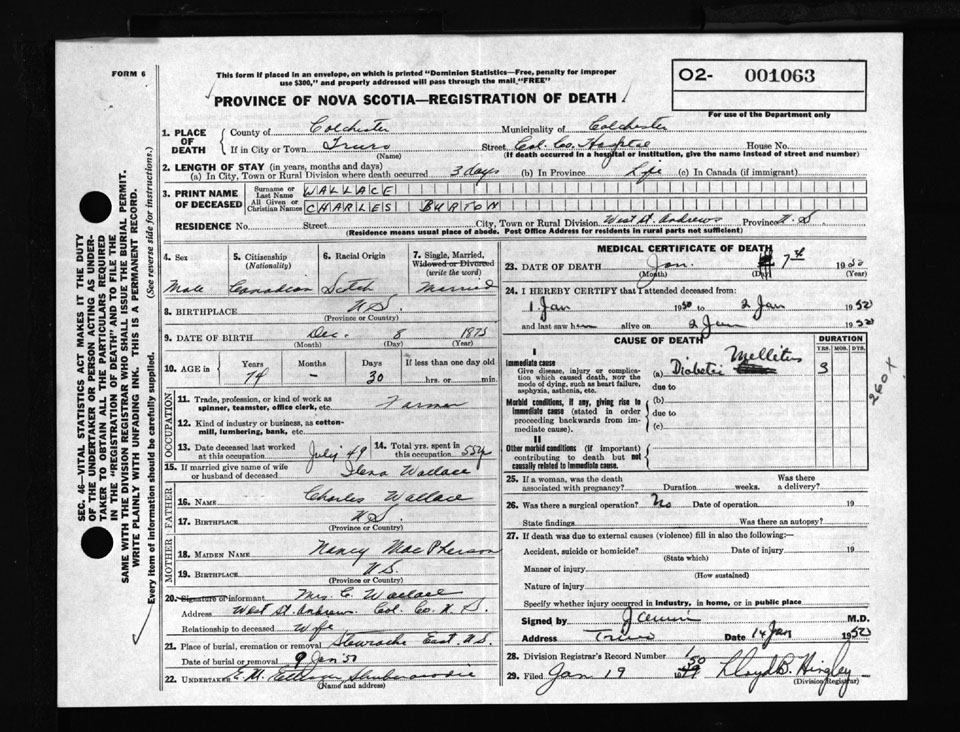 FORM 6
This form if placed in an envelope, on which is printed "Dominion Statistics—Free, penalty for improper
use $300," and properly addressed will pass through the mail "FREE"
O2- 001063
For use of the Department only
PROVINCE OF NOVA SCOTIA—REGISTRATION OF DEATH
1. PLACE OF DEATH
County of Colchester Municipality of Colchester
If in City or Town Truro Street Col. Co. Hospital House No.
(Name) (If death occurred in a hospital or institution, give the name instead of street and number)
2. LENGTH OF STAY (in years, months and days)
(a) In City, Town or Rural Division where death occurred 3 days (b) In Province Life (c) In Canada (if immigrant)
3. PRINT NAME OF DECEASED
Surname or Last Name WALLACE
All Given or Christian Names CHARLES BURTON
RESIDENCE No. Street City, Town or Rural Division West St. Andrews Province N. S
(Residence means usual place of abode. Post Office Address for residents in rural parts not sufficient)
4. Sex Male
5. Citizenship (Nationality) Canadian
6. Racial Origin Scotch
7. Single, Married, Widowed or Divorced (write the word) Married
8. BIRTHPLACE N S
(Province or Country)
9. DATE OF BIRTH Dec. 8 1875
(Month) (Day) (Year)
10. AGE in Years Months Days If less than one day old
74 – 30 hrs. or min.
OCCUPATION
11. Trade, profession, or kind of work as
spinner, teamster, office clerk, etc. Farmer
12. Kind of industry or business, as cotton-
mill, lumbering, bank, etc.
13. Date deceased last worked at this occupation July 49
14. Total yrs. spent in this occupation 55 yr
15. If married give name of wife
or husband of deceased Wallace
FATHER
16. NAME Charles Wallace
17. BIRTHPLACE N S
(Province or Country)
MOTHER
18. MAIDEN NAME Nancy MacPherson
19. BIRTHPLACE N S
(Province or Country)
20. Signature of informant Mrs C. Wallace
Address West St. Andrews Col. Co. N. S.
Relationship to deceased Wife
21. Place of burial, cremation or removal East. N.S
Date of burial or removal 9 Jan 50
22. UNDERTAKER E. M.
(Name and address)
MEDICAL CERTIFICATE OF DEATH
23. DATE OF DEATH Jan. 7th 1950
(Month) (Day) (Year)
24. I HEREBY CERTIFY that I attended deceased from:
1 Jan 1950 to 2 Jan 1950
and last saw him alive on 2 Jan 1950
CAUSE OF DEATH
DURATION
YRS. MOS. DYS.
I
Immediate cause
Give disease, injury or complica-
tion which caused death, not the
mode of dying, such as heart failure,
asphyxia, asthenia, etc.
(a) Diabetes Mellitus 3
due to
Morbid conditions, if any, giving rise to
immediate cause (stated in order
proceeding backwards from im-
mediate cause).
(b)
due to
(c)
II
Other morbid conditions (if important)
contributing to death but not
causally related to immediate cause.
260 X
25. If a woman, was the death
associated with pregnancy? Duration weeks. Was there
a delivery?
26. Was there a surgical operation? No Date of operation 19
State findings Was there an autopsy?
27. If death was due to external causes (violence) fill in also the following:—
Accident, suicide or homicide? Date of injury 19
(State which)
Manner of injury
(How sustained)
Nature of injury
Specify whether injury occurred in industry, in home, or in public place
Signed by M.D.
Address Truro Date 14 Jan 1950
28. Division Registrar's Record Number 1
29. Filed Jan 19 1950 Lloyd B. Hingley
(Division Registrar)
SEC. 46—VITAL STATISTICS ACT MAKES IT THE DUTY
OF THE UNDERTAKER OR PERSON ACTING AS UNDER-
TAKER TO OBTAIN ALL THE PARTICULARS REQUIRED
IN THE "REGISTRATION OF DEATH" AND TO FILE THE
SAME WITH THE DIVISION REGISTRAR WHO SHALL ISSUE THE BURIAL PERMIT.
WRITE PLAINLY WITH UNFADING INK. THIS IS A PERMANENT RECORD.
Every item of information should be carefully supplied. (See reverse side for instructions.)